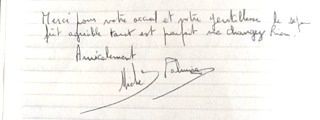 Merci pour votre accueil et votre gentillesse le séjour
fût agréable tout est parfait ne changez Rien.
Amicalement
Michel